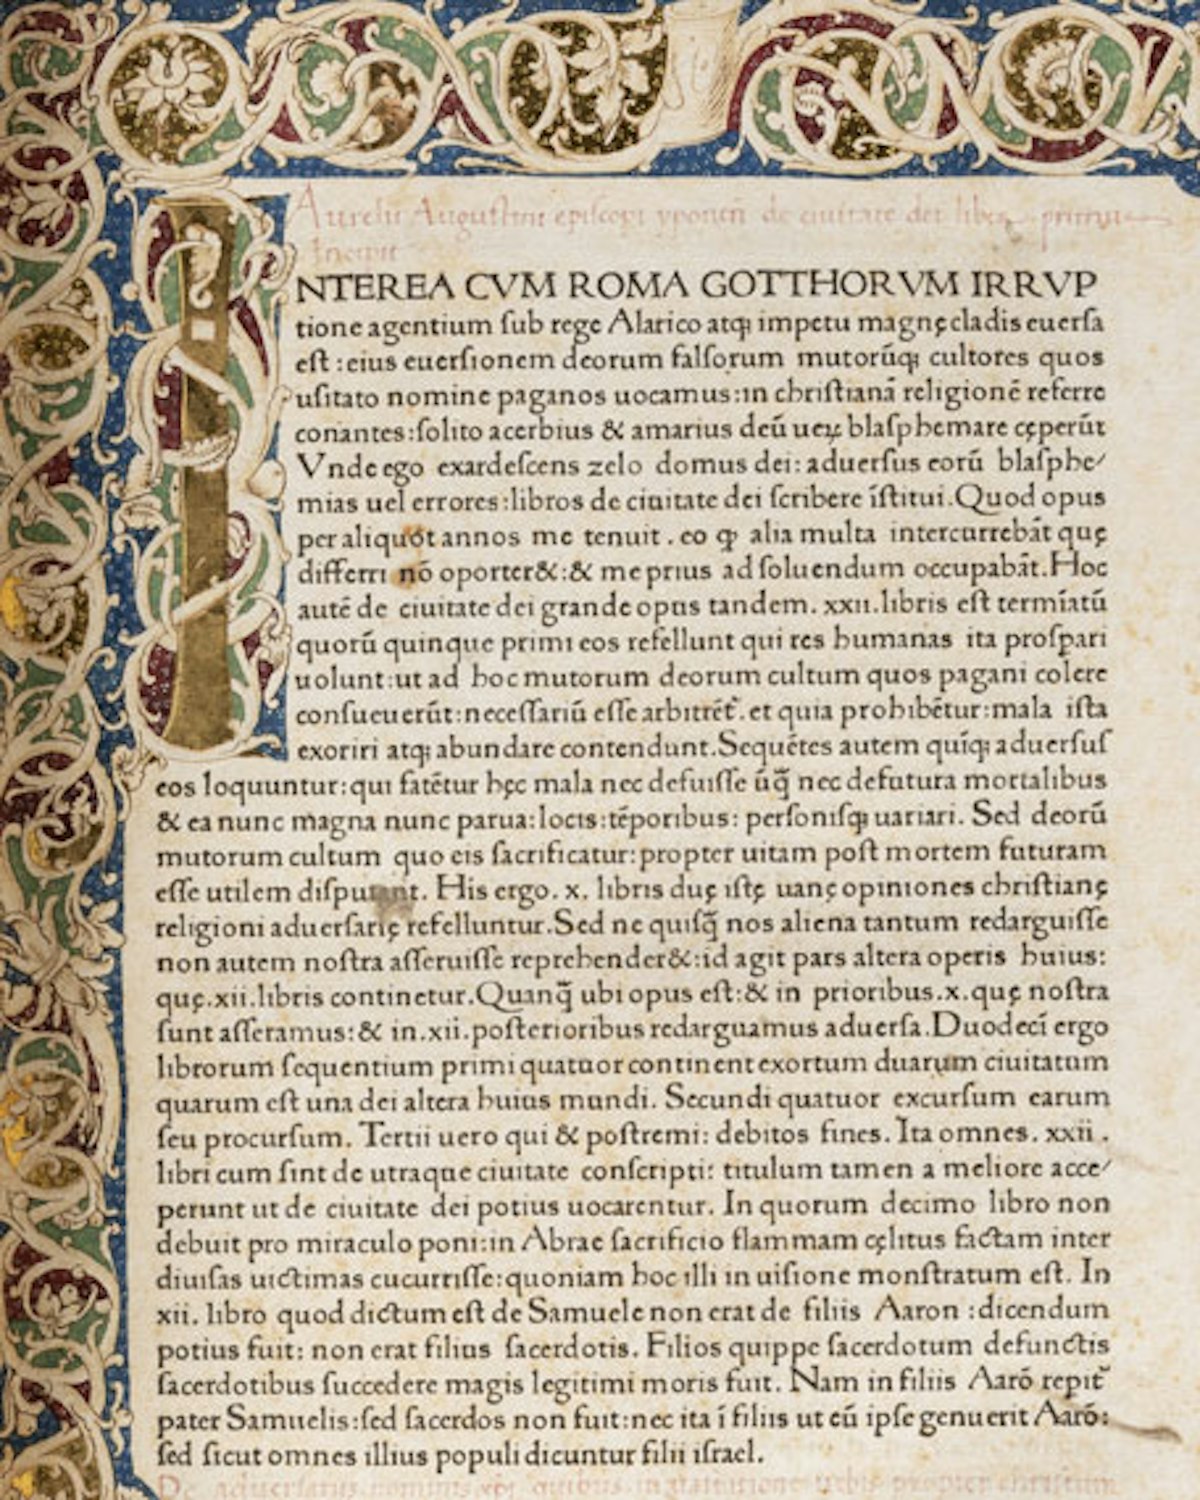 Aurelii Augustini episcopi yponen̄ de ciuitate dei liber primus
Incipit
INTEREA CVM ROMA GOTTHORVM IRRVP
tione agentium sub rege Alarico atq; impetu magnę cladis euersa
est : eius euersionem deorum falsorum mutorūq; cultores quos
usitato nomine paganos uocamus: in christianā religionē referre
conantes: solito acerbius & amarius deū ueꝝ blasphemare cęperūt
Vnde ego exardescens zelo domus dei: aduersus eorū blasphe/
mias uel errores: libros de ciuitate dei scribere īstitui. Quod opus
per aliquot annos me tenuit . eo ꝙ alia multa intercurrebāt quę
differri nō oporter&: & me prius ad soluendum occupabāt. Hoc
autē de ciuitate dei grande opus tandem . xxii. libris est termīatū
quorū quinque primi eos refellunt qui res humanas ita prosꝑari
uolunt: ut ad hoc mutorum deorum cultum quos pagani colere
consueuerūt: necessariū esse arbitrēt̃. et quia prohibētur: mala ista
exoriri atq; abundare contendunt. Sequētes autem quīq; aduersus
eos loquuntur: qui fatētur hęc mala nec defuisse ūq̄ nec defutura mortalibus
& ea nunc magna nunc parua: locis: tēporibus: personisq; uariari. Sed deorū
mutorum cultum quo eis sacrificatur: propter uitam post mortem futuram
esse utilem disputant. His ergo . x. libris duę istę uanę opiniones christianę
religioni aduersarię refelluntur. Sed ne quisq̄ nos aliena tantum redarguisse
non autem nostra asseruisse reprehender&: id agit pars altera operis huius:
quę .xii. libris continetur. Quanq̄ ubi opus est: & in prioribus .x. quę nostra
sunt asseramus: & in .xii. posterioribus redarguamus aduersa. Duodecī ergo
librorum sequentium primi quatuor continent exortum duarum ciuitatum
quarum est una dei altera huius mundi. Secundi quatuor excursum earum
seu procursum. Tertii uero qui & postremi: debitos fines. Ita omnes . xxii .
libri cum sint de utraque ciuitate conscripti: titulum tamen a meliore acce/
perunt ut de ciuitate dei potius uocarentur. In quorum decimo libro non
debuit pro miraculo poni: in Abrae sacrificio flammam cęlitus factam inter
diuisas uictimas cucurrisse: quoniam hoc illi in uisione monstratum est. In
xii. libro quod dictum est de Samuele non erat de filiis Aaron : dicendum
potius fuit: non erat filius sacerdotis. Filios quippe sacerdotum defunctis
sacerdotibus succedere magis legitimi moris fuit. Nam in filiis Aarō repit̃
pater Samuelis: sed sacerdos non fuit: nec ita ī filiis ut eū ipse genuerit Aarō:
sed sicut omnes illius populi dicuntur filii israel.
De aduersariis nominis xp̄i quibus in uastatione urbis propter christum